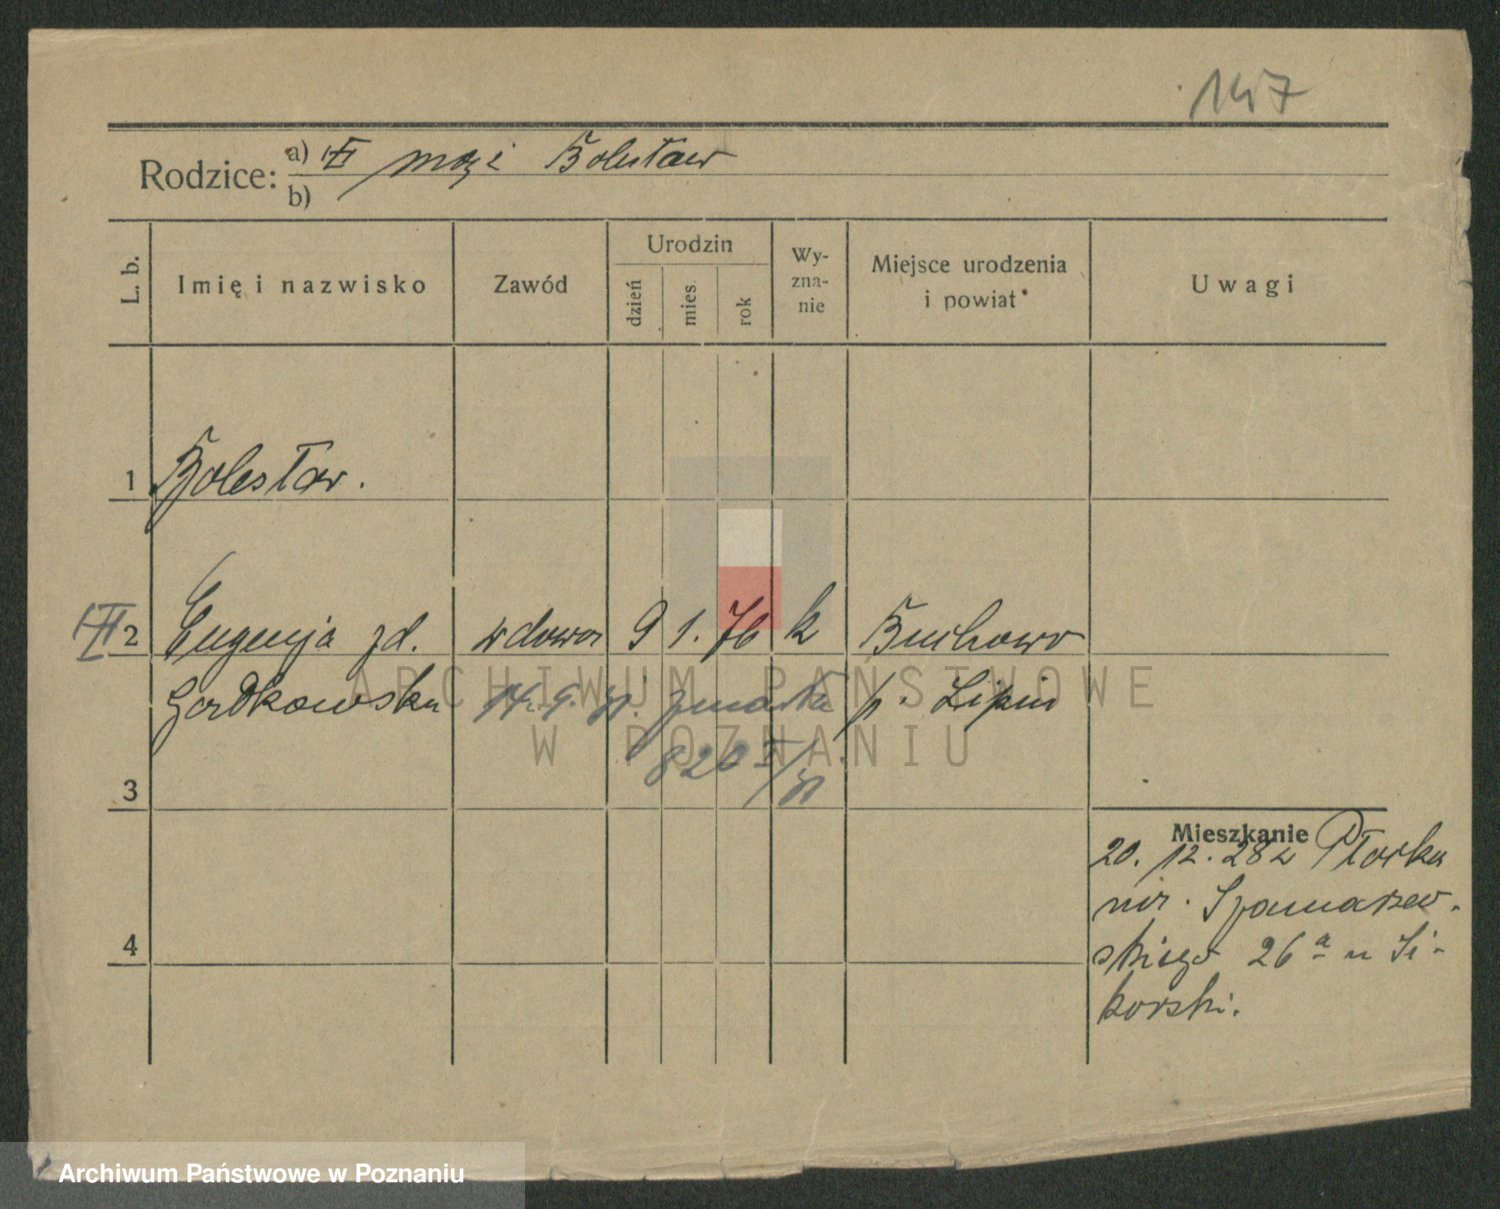 147
Rodzice: a) VI mąż Bolesław
b)
L. b. Imię i nazwisko Zawód Urodzin dzień mies rok Wy-zna-nie Miejsce urodzenia i powiat Uwagi
1 Bolesław.
2 Eugenja zd. wdowa 9 1. 76 k Buchowo
14. 9. 31. zmarła p. Lipin
820
3
Mieszkanie
20. 12. 28 z Płocka
4
26a u Si-
korski.
ARCHIWUM PAŃSTWOWE
W POZNANIU
Archiwum Państwowe w Poznaniu